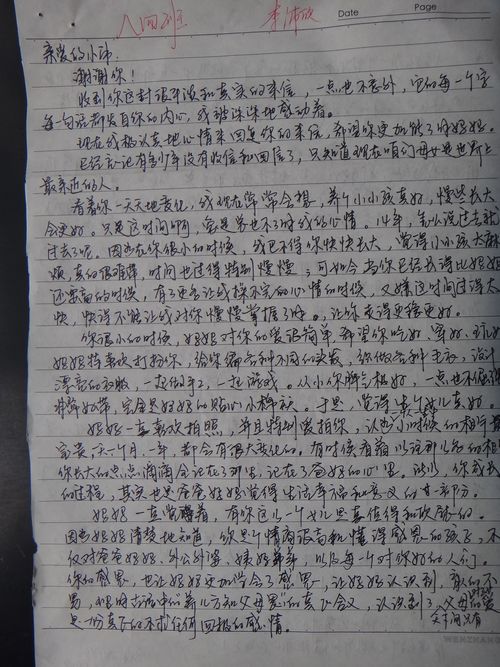 八四班 李沛欣
Date Page
亲爱的小沛
谢谢你！
收到你这封很平淡和真实的来信，一点也不意外，它的每一个字
每一句话都发自你的内心，我被深深地感动着。
现在我极认真地心情来回复你的来信，希望你更加能了解妈妈。
已经忘记有多少年没有收信和回信了，只知道现在咱们母女是世界上
最亲近的人。
看着你一天天地变化，我现在常常会想，养个小小孩真好，慢些长大
会更好。只是这时间啊，总是常也不了解我的心情。14年，怎么说过去就
过去了呢。因为在你很小的时候，我巴不得你快快长大，觉得小小孩太麻
烦，真的很难障，时间也过得特别慢慢；可如今当你已经长得比妈妈
还要高的时候，有了更多让我操不完的心情的时候，又嫌这时间过得太
快，快得不能让我对你慢慢掌握了解。，让你变得更稳更好。
你很小的时候，妈妈对你的爱很简单，希望你吃好、穿好、玩好
妈妈特喜欢打扮你，给你编各种不同的头发，给你做各种毛衣，设计
漂亮的衣服，一起做手工，一起游戏。从小你脾气极好，一点也不倔强
非常好带，完全是妈妈的贴心小棉袄。于是，觉得生个女儿真好。
妈妈一直喜欢拍照，并且特别爱拍你，认为小时候的相片最
宝贵，一个月、一年，都会有很大变化的。有时候看着以前那儿多的相
你长大的点点滴滴全记在了那里，记在了爸妈的心里。所以，你成长
的过程，其实也是爸爸妈妈觉得生活幸福和意义的廿一部分。
妈妈一直觉得着，有你这么一个女儿是真值得和欣慰的。
因为妈妈清楚地知道，你是个情商很高和懂得感恩的孩子，不
仅对爸爸妈妈、外公外婆、姨妈弟弟，以及每一个对你好的人们。
你的感恩，也让妈妈更加学会了感恩，让妈妈认识到，
恩，和那时古话中的“养儿方知父母恩”的真正含义，认识到了，父母的爱
是一份真正的不求任何回报的感情。
WENZHAN